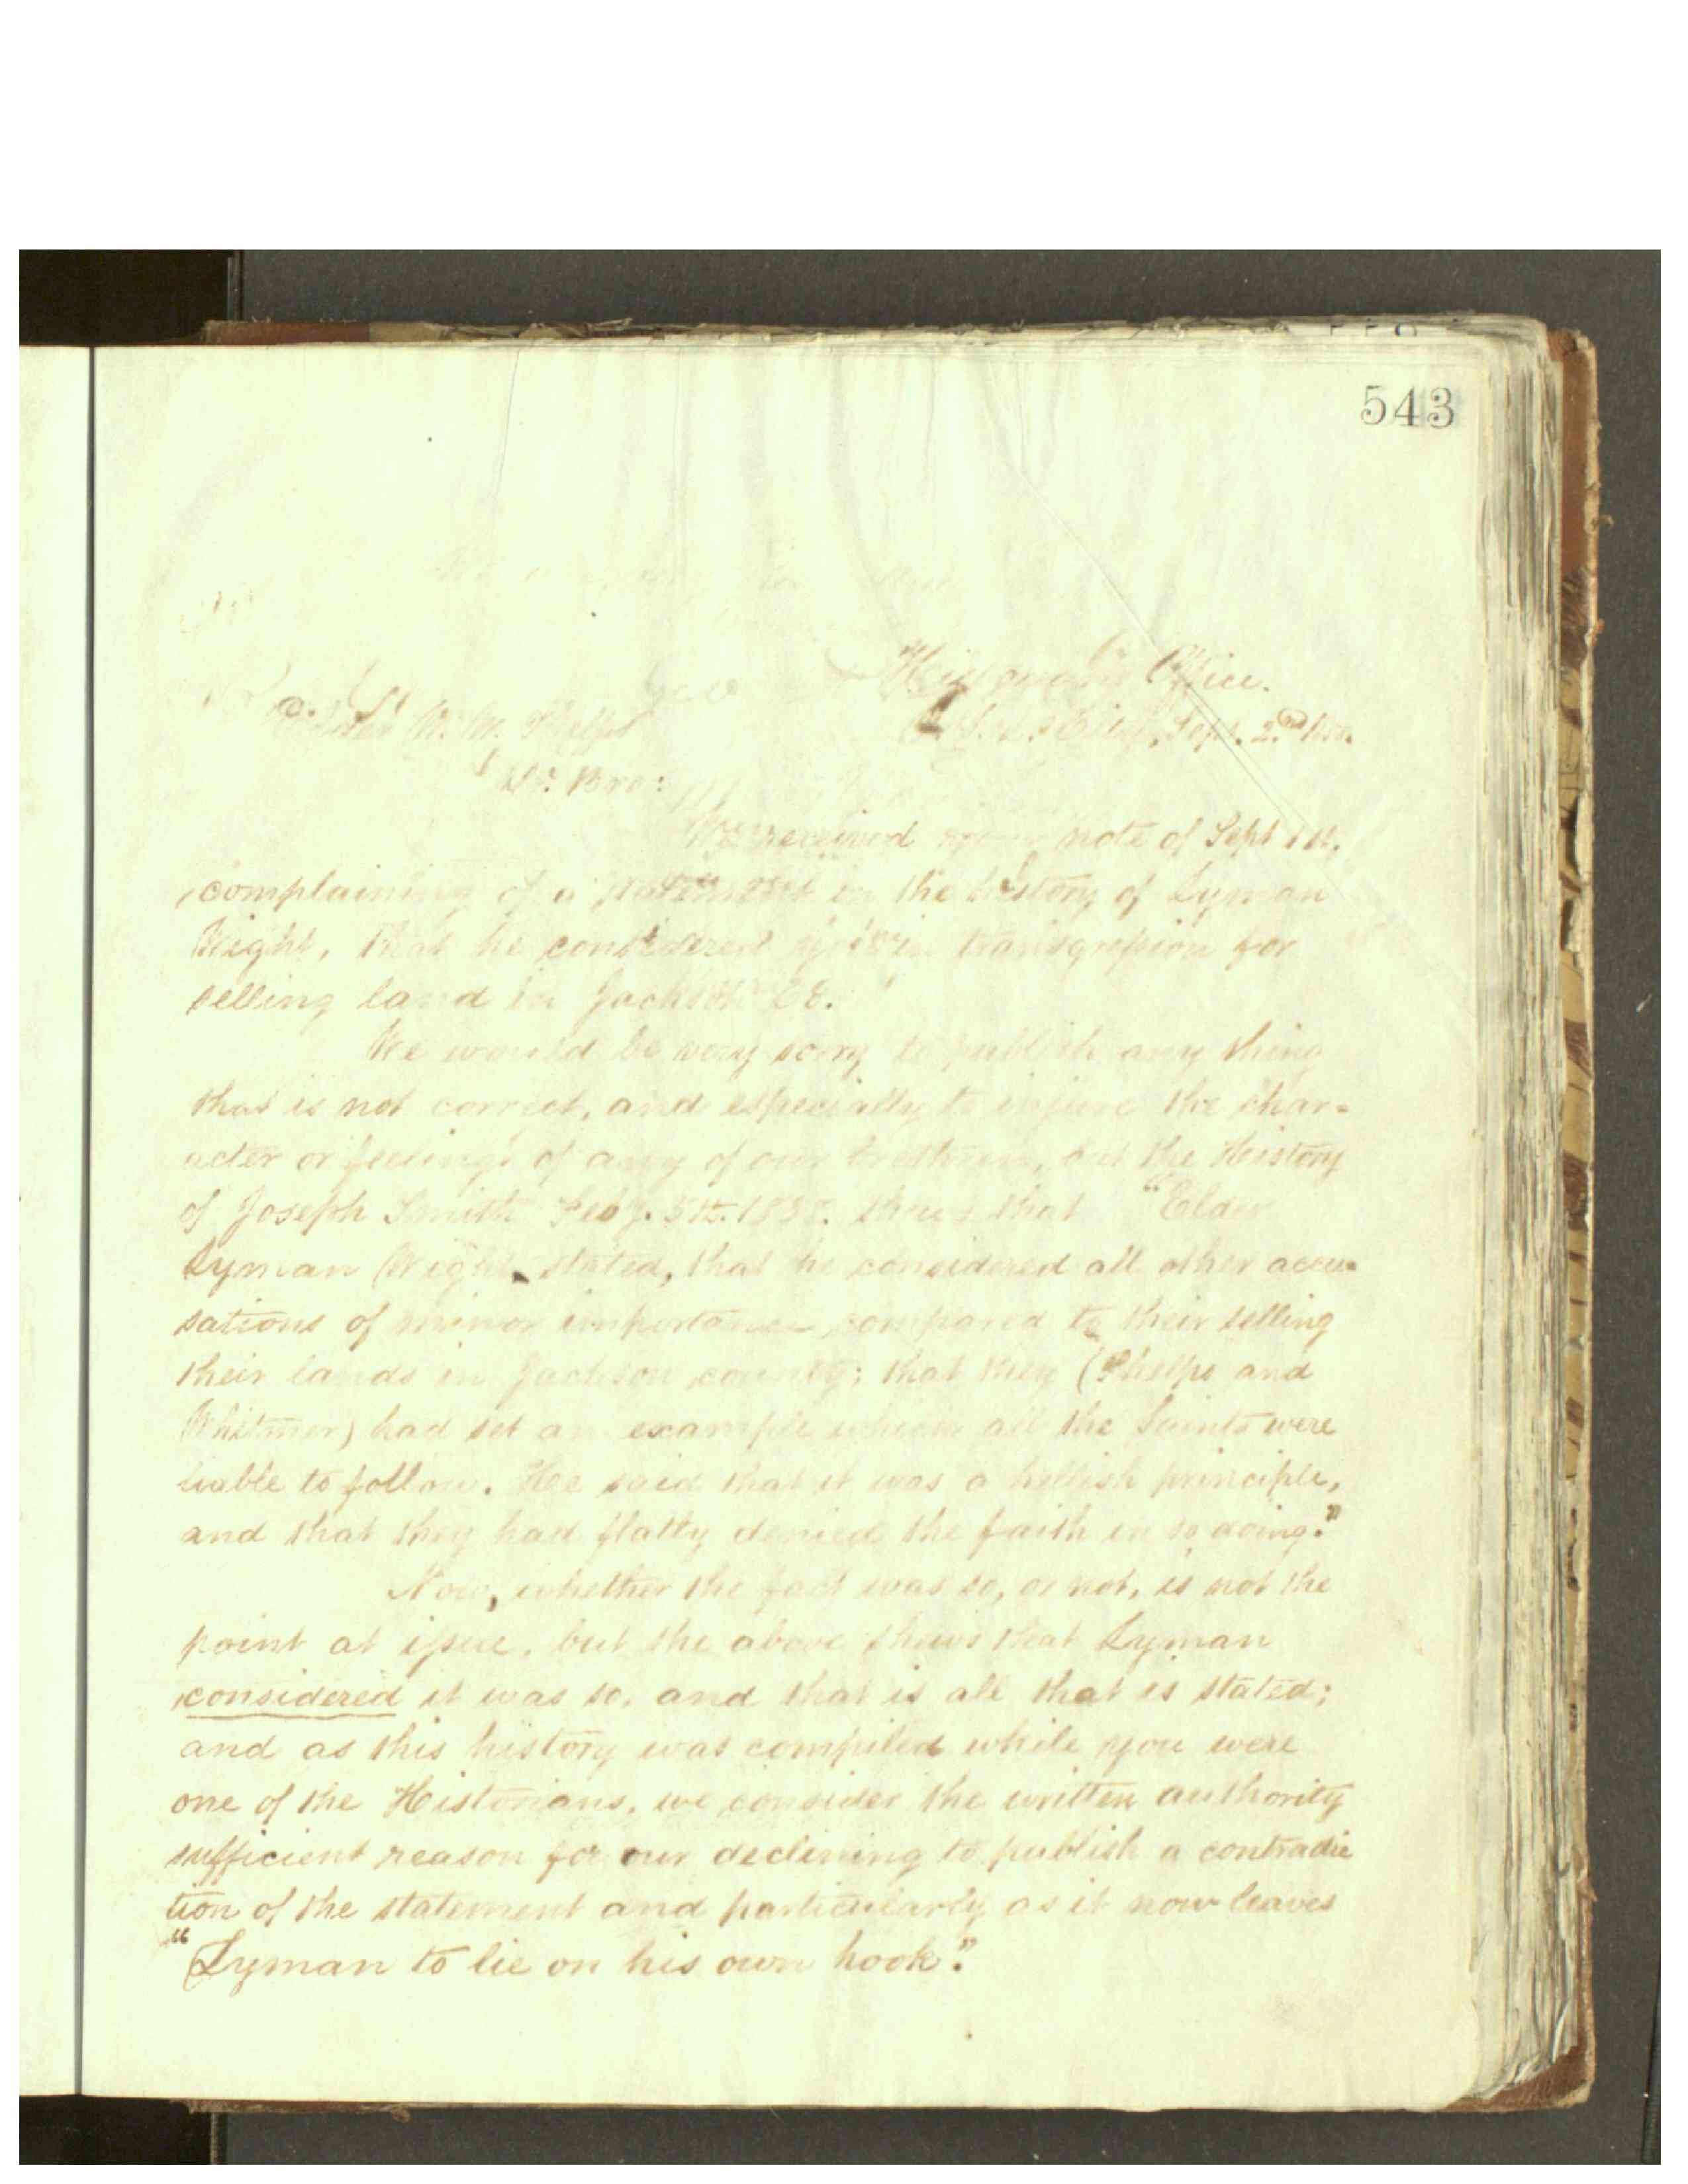 543
Historian's Office.
Elder W. W. Phelps
G. S. L. City, Sept. 2nd
Dr. Bro:
We received your note of Sept 1st.
complaining of a statement in the history of Lyman
Wight, that he considered you in transgression for
selling land in Jackson Co.
We would be very sorry to publish any thing
that is not correct, and especially to injure the char=
acter or feelings of any of our brethren, but the History
of Joseph Smith Feby. 5th. 1838. shows that "Elder
Lyman Wight stated, that he considered all other accu=
sations of minor importance compared to their selling
their lands in Jackson county; that they (Phelps and
Whitmer) had set an example which all the Saints were
liable to follow. He said that it was a hellish principle,
and that they had flatly denied the faith in so doing."
Now, whether the fact was so, or not, is not the
point at issue, but the above shows that Lyman
considered it was so, and that is all that is stated;
and as this history was compiled while you were
one of the Historians, we consider the written authority
sufficient reason for our declining to publish a contradic
tion of the statement and particularly as it now leaves
"Lyman to lie on his own hook."